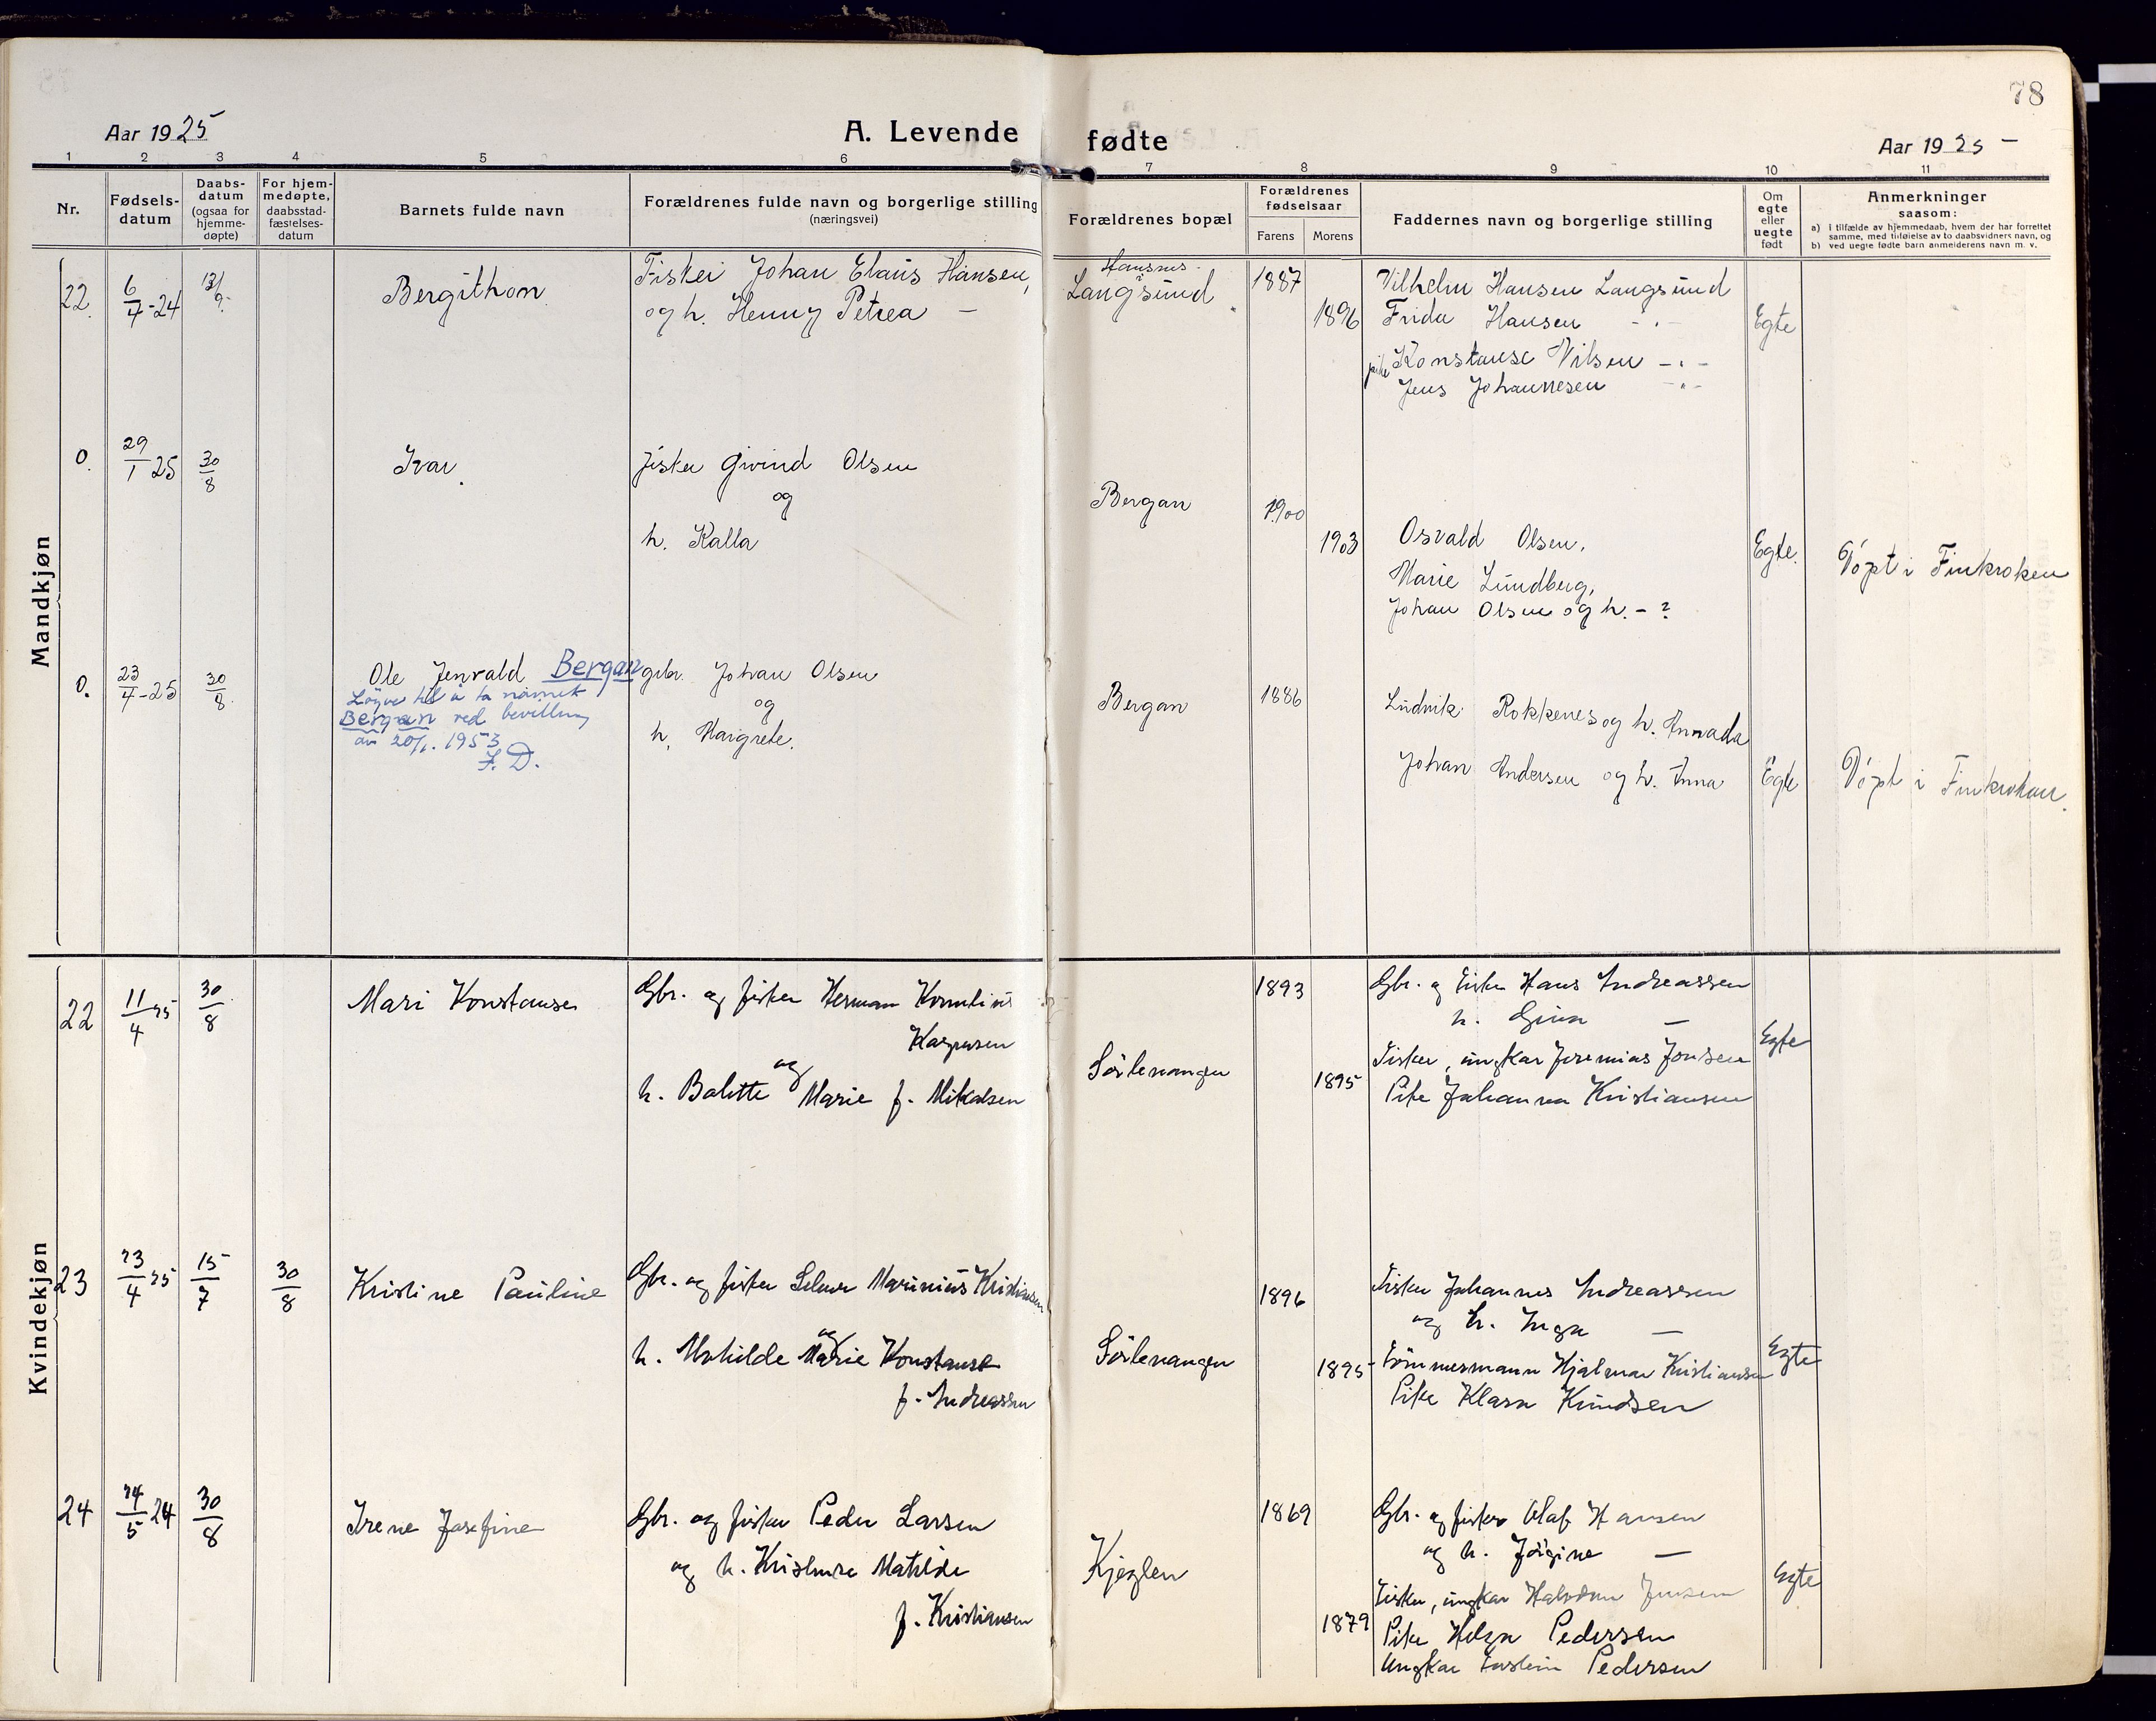 78
Aar 1925
A. Levende fødte
Aar 1925 –
1 2 3 4 5 6 7 8 9 10 11
Nr.
Fødsels-
datum
Daabs-
datum
(ogsaa for
hjemme-
døpte)
For hjem-
medøpte,
daabsstad-
fæstelses-
datum
Barnets fulde navn
Forældrenes fulde navn og borgerlige stilling
(næringsvei)
Forældrenes bopæl
Forældrenes
fødselsaar
Farens
Morens
Faddernes navn og borgerlige stilling
Om
egte
eller
uegte
født
Anmerkninger
saasom:
a) i tilfælde av hjemmedaab, hvem der har forrettet
samme, med tilføielse av to daabsvidners navn, og
b) ved uegte fødte barn anmelderens navn m. v.
Mandkjøn
22.
6/4-24
13/9-
Bergithon
Fisker Johan Elaus Hansen,
og h. Henny Petrea –
Hansnes
Langsund
1887
1896
Vilhelm Hansen Langsund
Frida Hansen -"-
pike Konstanse Nilsen -"-
Jens Johannesen -"-
Egte
0.
29/1 25
30/8
Ivar.
fisker Eivind Olsen
og
h. Kalla
Bergan
1900
1903
Osvald Olsen,
Marie Lundberg,
Johan Olsen og h. – ?
Egte.
Döpt i Finkroken
0.
23/4-25
30/8
Ole Jenvald Bergan
Löyve til å ta namnet
Bergan ved bevilling
av 20/1. 1953
J. D.
gbr. Johan Olsen
og
h. Margrete.
Bergan
1886
Ludvik Rokkenes og h. Annada
Johan Andersen og h. Anna
Egte
Döpt i Finkroken.
Kvindekjøn
22
11/4 25
30/8
Mari Konstanse
Gbr. og fisker Herman Kornelius
Kaspersen
og
h. Balette Marie f. Mikalsen
Sörlenangen
1893
1895
Gbr. og fisker Hans Andreassen
h. Gina –
Fisker, ungkar Jeremias Jonsen
Pike Johanna Kristiansen
Egte
23
23/4 25
15/7
30/8
Kristine Pauline
Gbr. og fisker Selmer Marinius Kristiansen
og
h. Mathilde Marie Konstanse
f. Andreassen
Sörlenangen
1896
1895
Fisker Johannes Andreassen
og h. Inga –
Tömmermann Hjalmar Kristiansen
Pike Klara Knudsen
Egte
24
24/5 24
30/8
Irene Josefine
Gbr. og fisker Peder Larsen
og h. Kristense Matilde
f. Kristiansen
Kjeglen
1869
1879
Gbr. og fisker Olaf Hansen
og h. Jörgine –
Fisker, ungkar Halvdan Jensen
Pike Helga Pedersen
Ungkar Torstein Pedersen
Egte